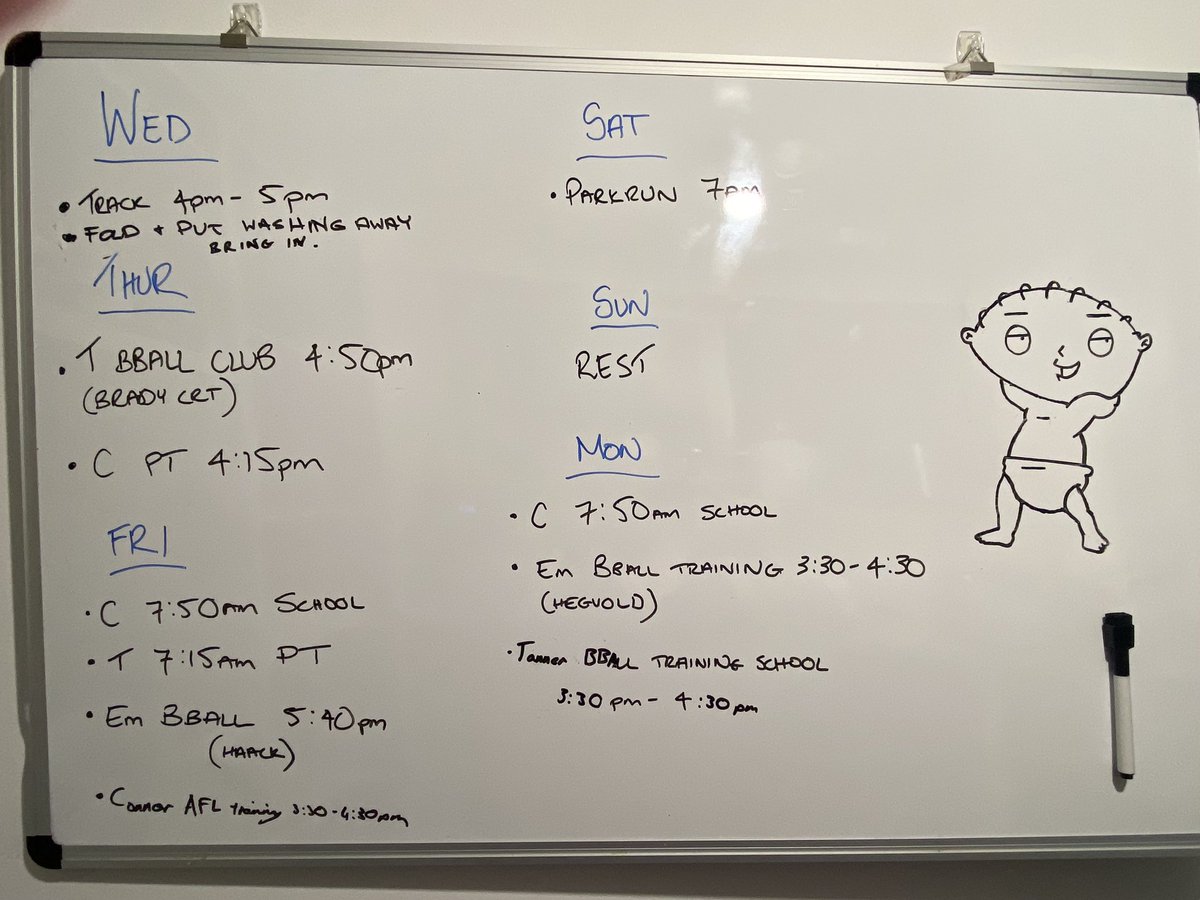 WED
• TRACK 4pm - 5pm
• FOLD + PUT WASHING AWAY
BRING IN.
THUR
• T BBALL CLUB 4:50pm
(BRADY CRT)
• C PT 4:15pm
FRI
• C 7:50am SCHOOL
• T 7:15AM PT
• Em BBALL 5:40pm
(HAACK)
• Connor AFL training 3:30-4:30pm
SAT
• PARKRUN 7am
SUN
REST
MON
• C 7:50AM SCHOOL
• Em BBALL TRAINING 3:30-4:30
(HEGVOLD)
• Tanner BBALL TRAINING SCHOOL
3:30 pm - 4:30 pm